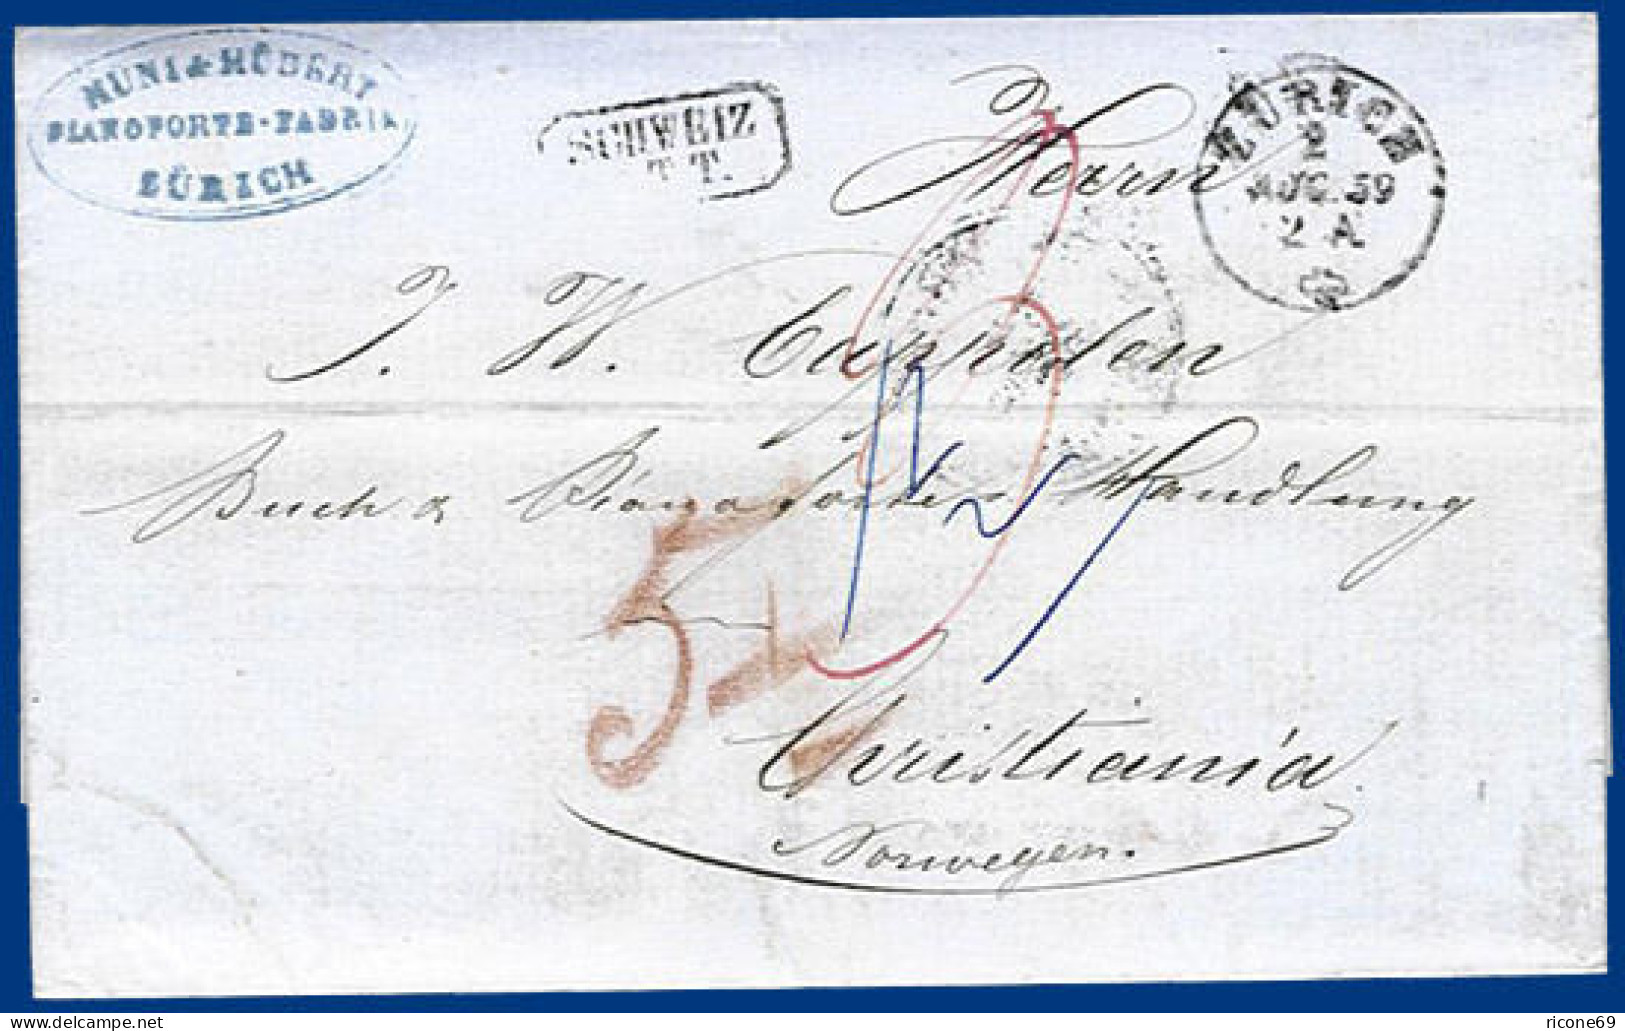 HÜNI & HÜBERT
PIANOFORTE-FABRIK
ZÜRICH
SCHWEIZ
T.T.
ZÜRICH
2
AUG. 59
2 A
Herrn
J. W. Cappelen
Buch & Pianoforte Handlung
Christiania
Norwegen.
delcampe.net
ricone69